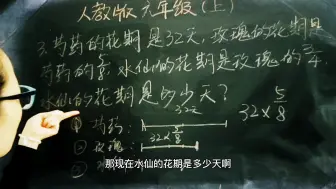 人教版六年级(上)
3.芍药的花期是32天,玫瑰的花期是
芍药的5/8,水仙的花期是玫瑰的3/4,
水仙的花期是多少天?
32天
① 芍药:
32×5/8
② 玫瑰:
32×5/8
那现在水仙的花期是多少天啊